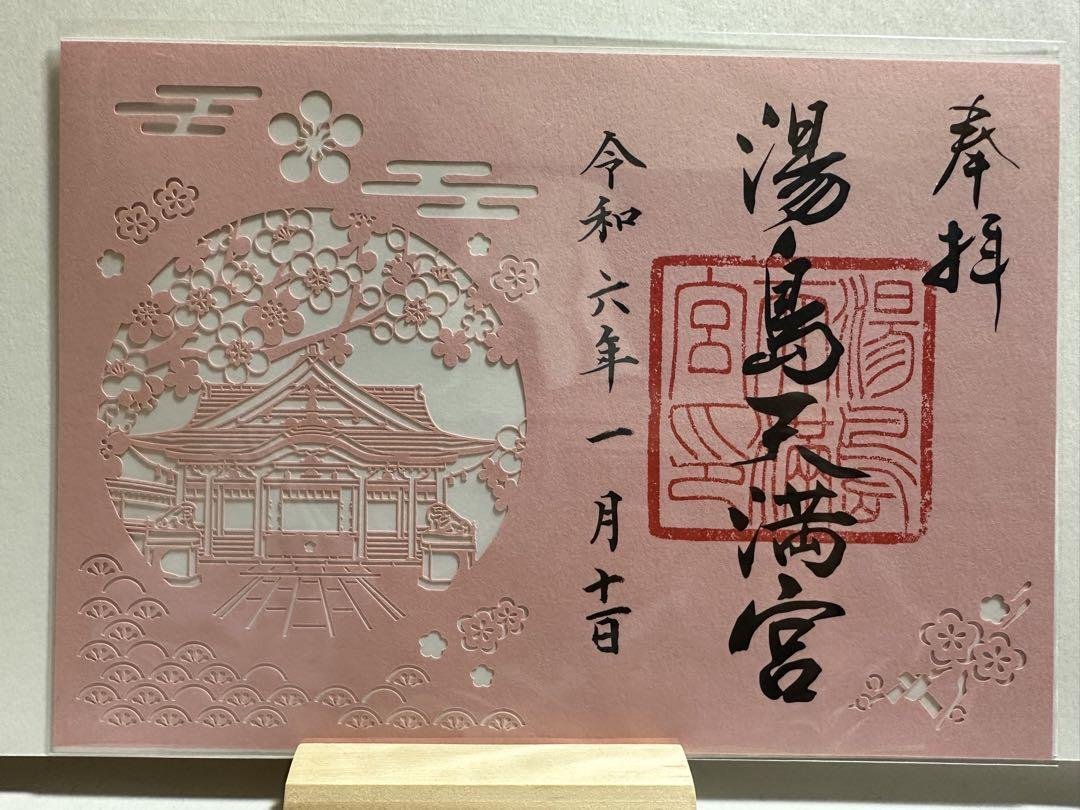 奉拝
湯島天満宮
湯島
天満
宮印
令和六年一月十一日